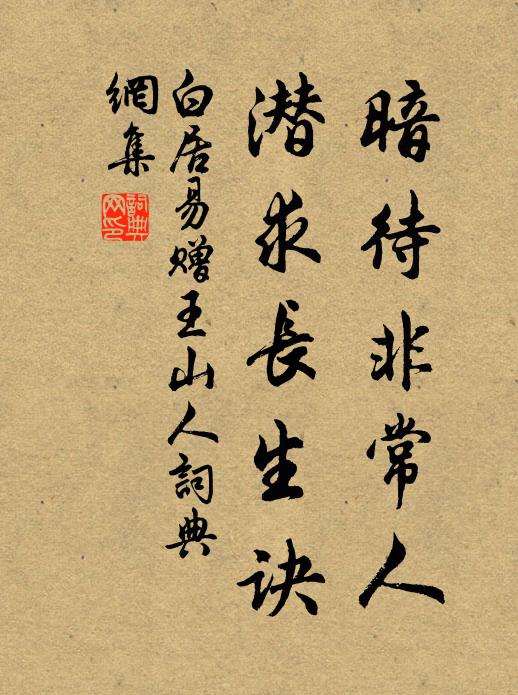 暗待非常人
潜求長生訣
白居易赠王山人詞典
網集
詞典
网印